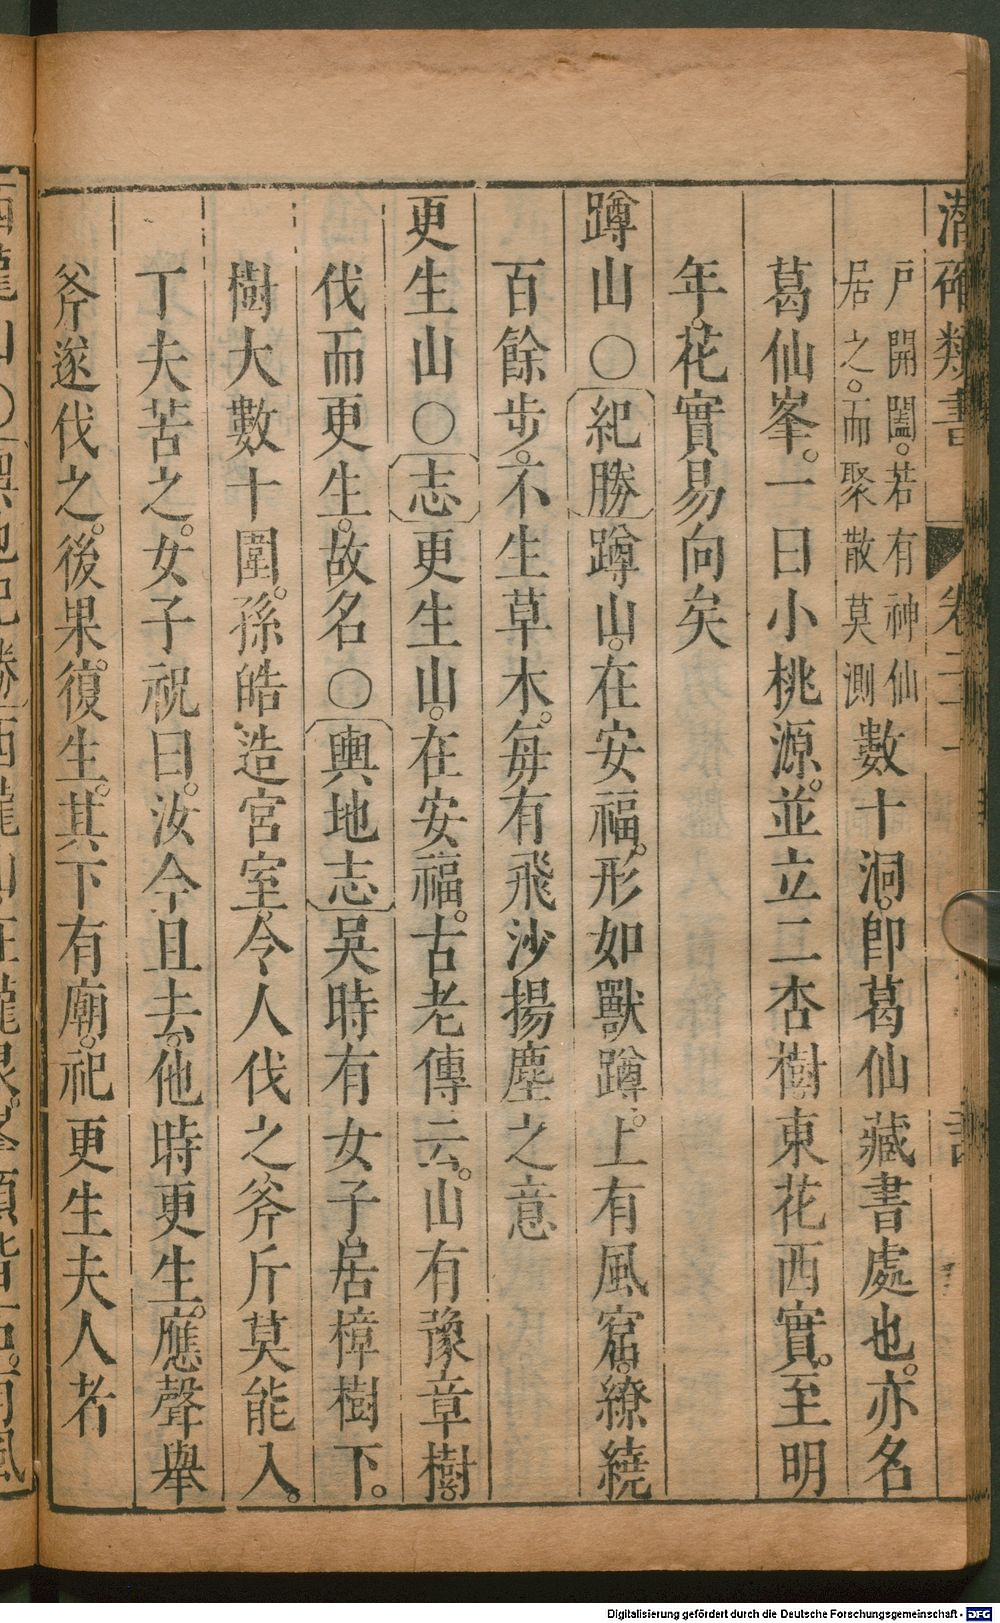 潛確類書 卷二十一
戶開闔。若有神仙
居之。而聚散莫測
數十洞。卽葛仙藏書處也。亦名
葛仙峯。一曰小桃源。並立二杏樹。東花西實。至明
年。花實易向矣
蹲山○紀勝蹲山。在安福。形如獸蹲。上有風窟。繚繞
百餘步。不生草木。每有飛沙揚塵之意
更生山○志更生山。在安福。古老傳云。山有豫章樹。
伐而更生。故名○輿地志吳時有女子。居樟樹下。
樹大數十圍。孫皓造宮室。令人伐之。斧斤莫能入。
丁夫苦之。女子祝曰。汝今且去。他時更生。應聲舉
斧遂伐之。後果。復生。其下有廟。祀更生夫人者
Digitalisierung gefördert durch die Deutsche Forschungsgemeinschaft - DFG